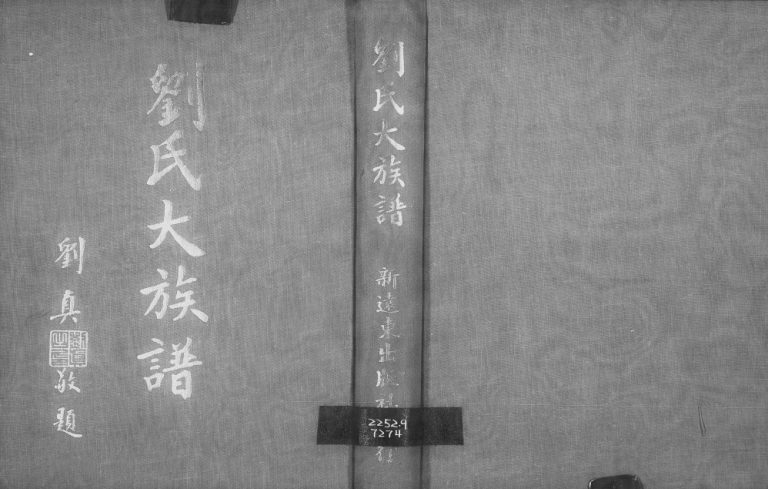 劉氏大族譜
劉真
敬題
劉氏大族譜
新遠東出版社
2252.9
7274